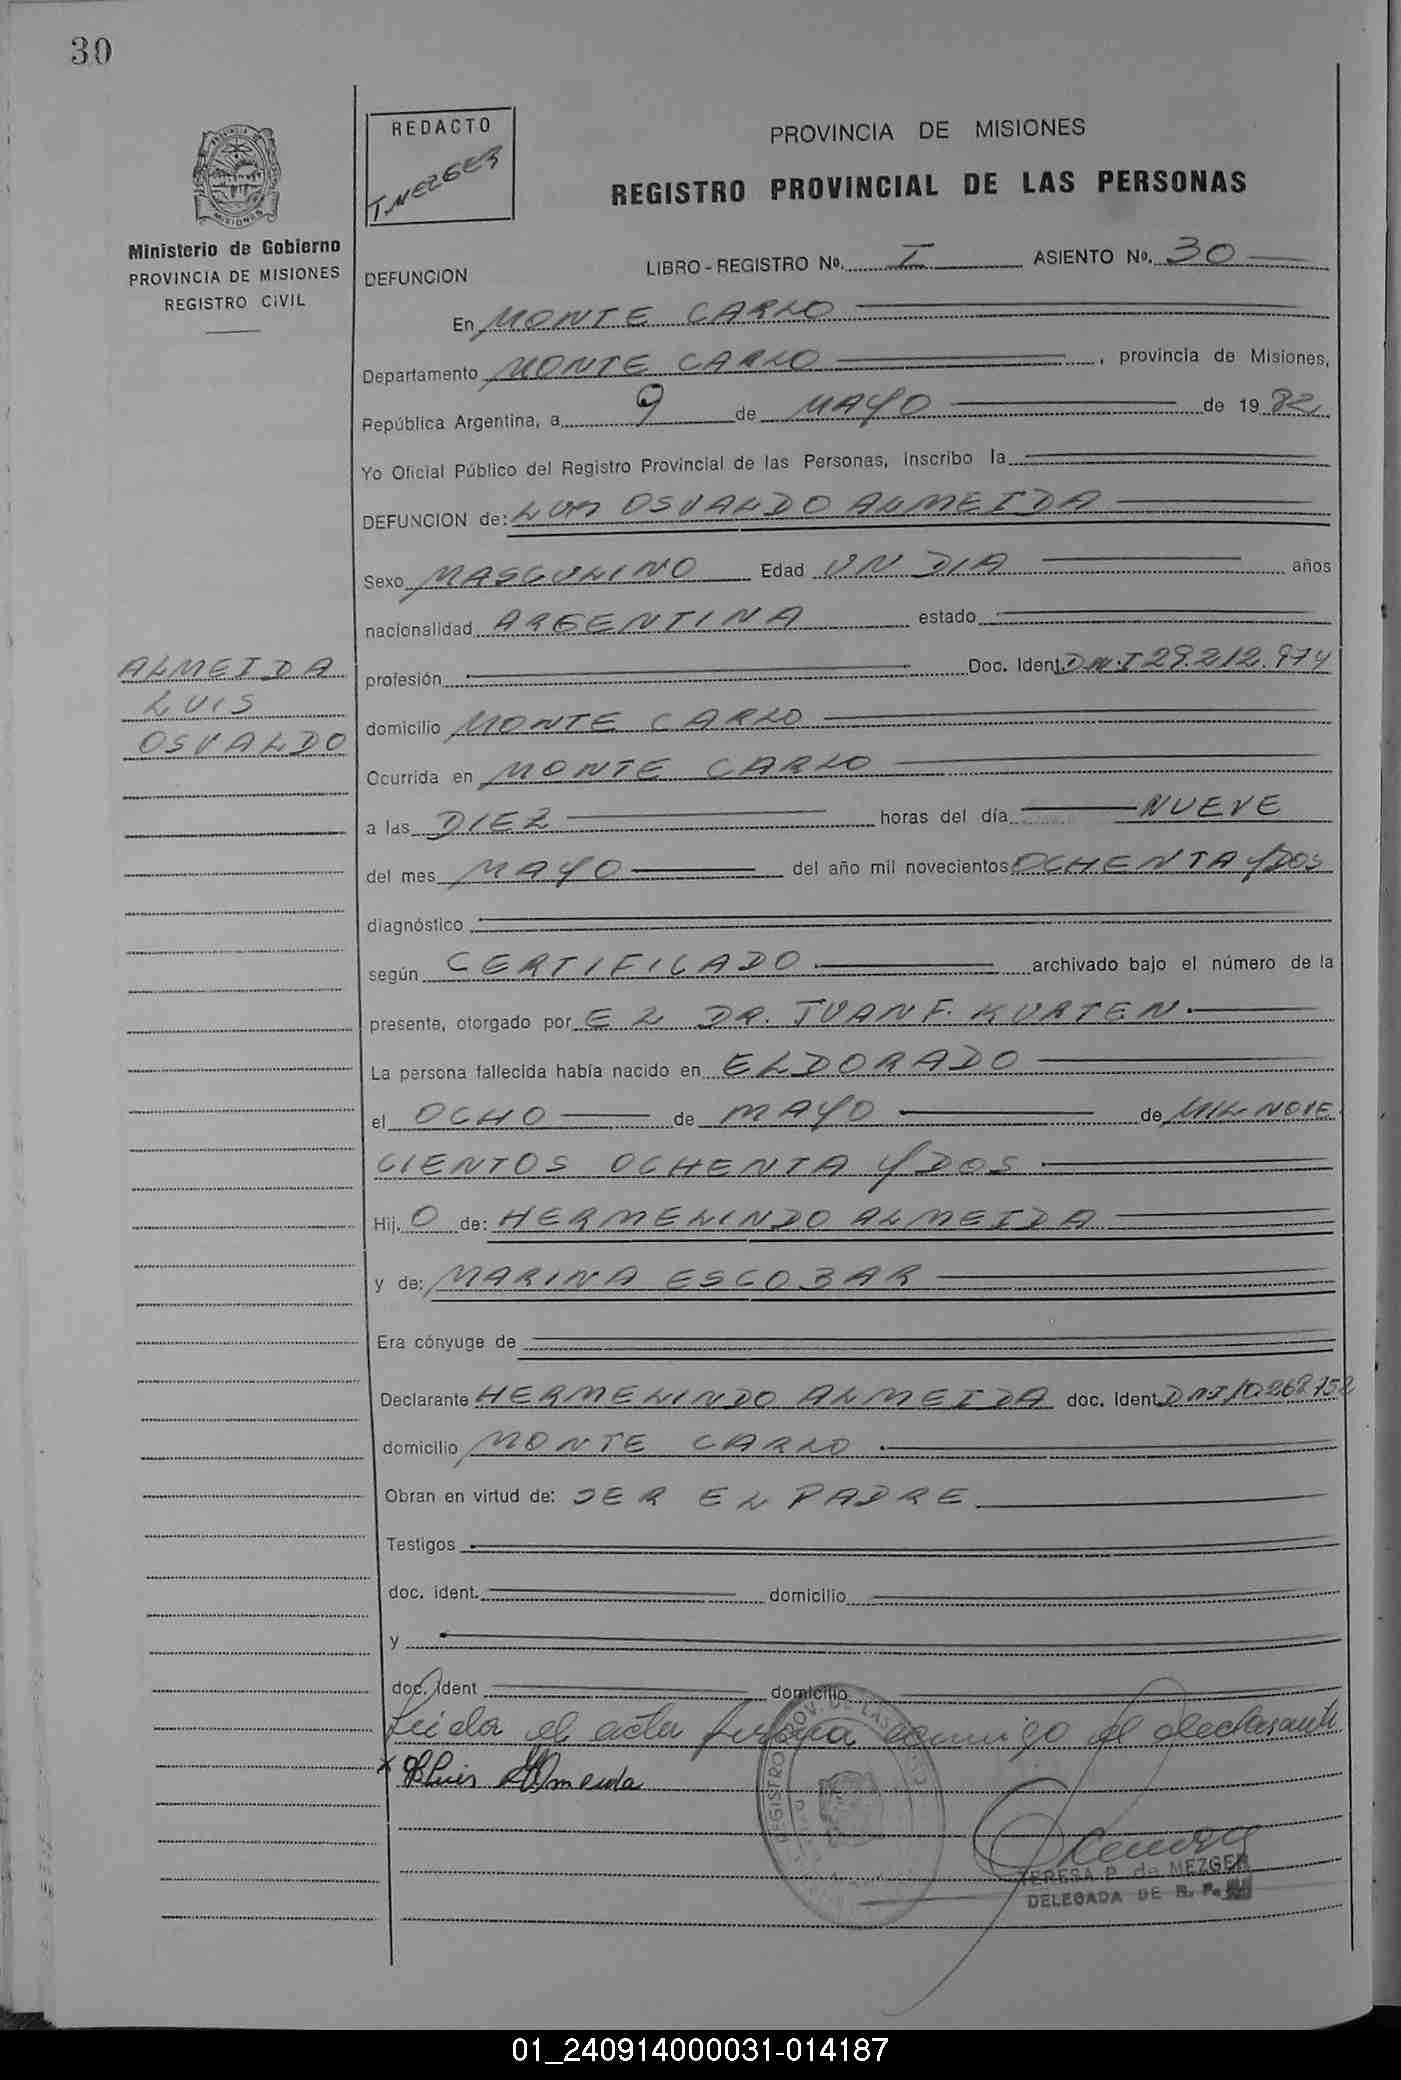 30
REDACTO
T. MEZGER
PROVINCIA DE MISIONES
REGISTRO PROVINCIAL DE LAS PERSONAS
Ministerio de Gobierno
PROVINCIA DE MISIONES
REGISTRO CIVIL
DEFUNCION LIBRO-REGISTRO No. I ASIENTO No. 30
En MONTE CARLO
Departamento MONTE CARLO, provincia de Misiones,
República Argentina, a 9 de MAYO de 1982
Yo Oficial Público del Registro Provincial de las Personas, inscribo la
DEFUNCION de: LUIS OSVALDO ALMEIDA
Sexo MASCULINO Edad UN DIA años
nacionalidad ARGENTINA estado
ALMEIDA
LUIS
OSVALDO
profesión Doc. Ident. D.N.I 29.212.974
domicilio MONTE CARLO
Ocurrida en MONTE CARLO
a las DIEZ horas del día NUEVE
del mes MAYO del año mil novecientos OCHENTA Y DOS
diagnóstico
según CERTIFICADO archivado bajo el número de la
presente, otorgado por EL DR. JUAN F. KURTEN
La persona fallecida había nacido en ELDORADO
el OCHO de MAYO de MIL NOVE
CIENTOS OCHENTA Y DOS
Hij. O de: HERMELINDO ALMEIDA
y de: MARINA ESCOBAR
Era cónyuge de
Declarante HERMELINDO ALMEIDA doc. Ident. DNI 10.268.752
domicilio MONTE CARLO
Obran en virtud de: SER EL PADRE
Testigos
doc. ident. domicilio
y
doc. ident domicilio
Leida el acta firma conmigo el declarante
Almeida
TERESA P. de MEZGER
DELEGADA DE R. P.
01_240914000031-014187